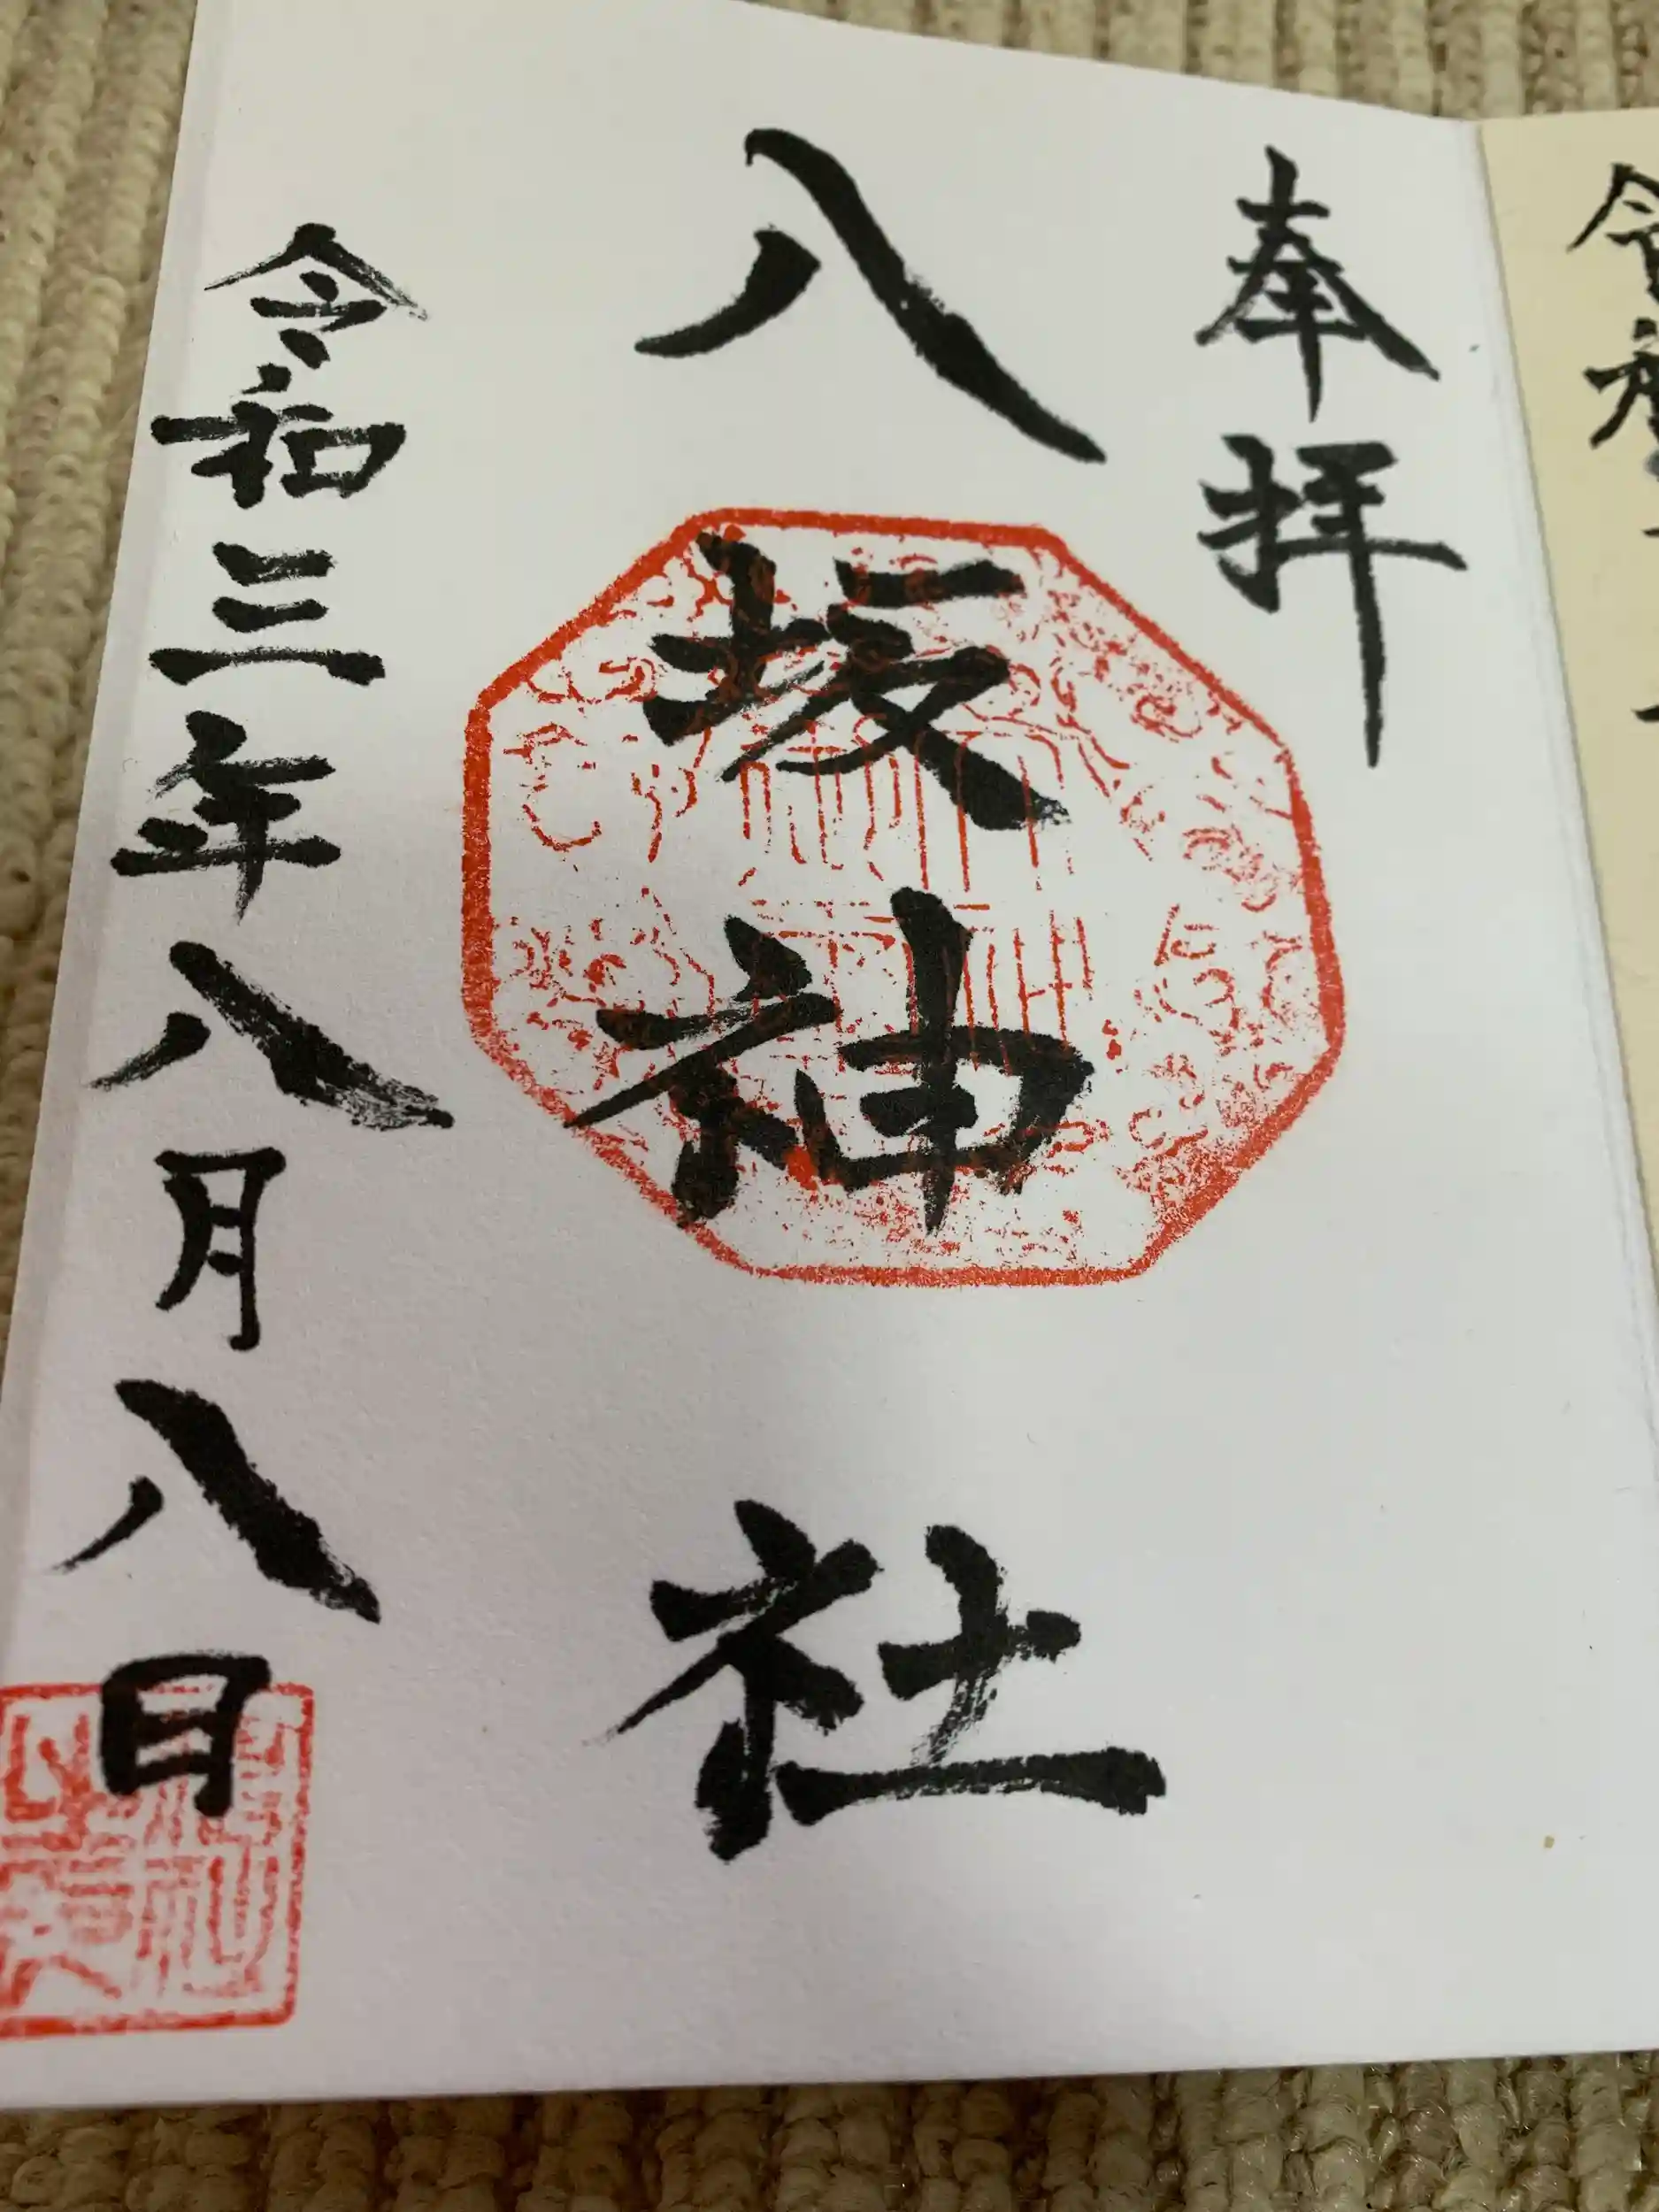 奉拝
八坂神社
令和三年八月八日